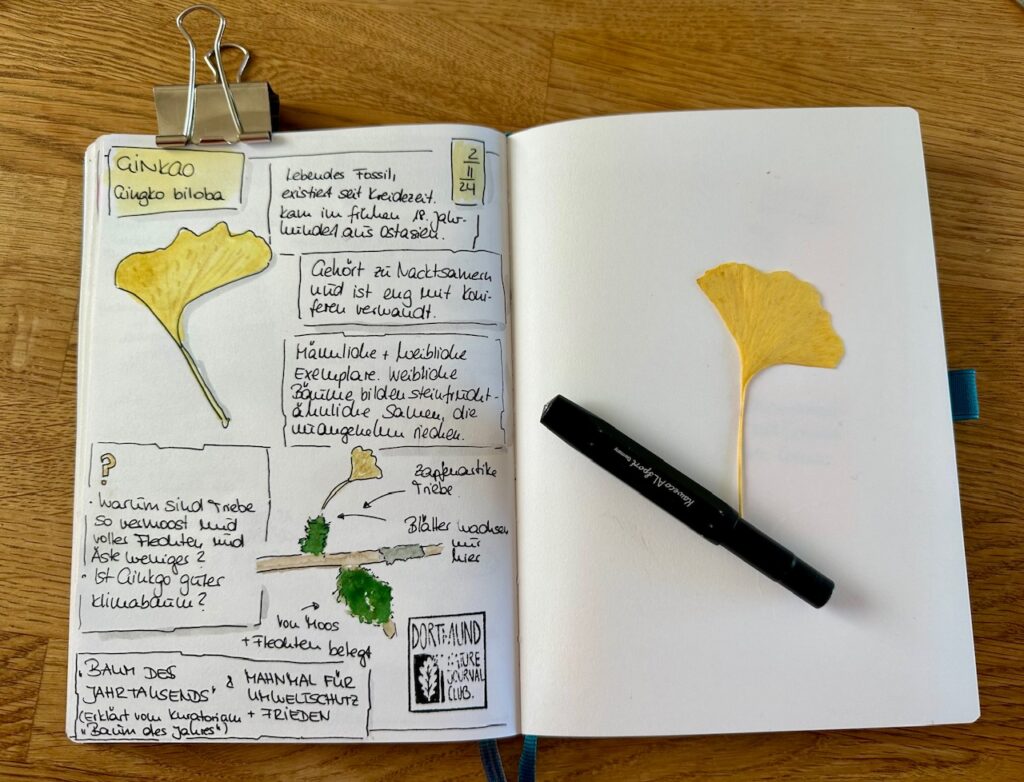 GINKGO
Gingko biloba
2
11
24
Lebendes Fossil,
existiert seit Kreidezeit.
Kam im frühen 18. Jahr-
hundert aus Ostasien.
Gehört zu Nacktsamern
und ist eng mit Koni-
feren verwandt.
Männliche + weibliche
Exemplare. Weibliche
Bäume bilden steinfrucht-
ähnliche Samen, die
unangenehm riechen.
?
· Warum sind Triebe
so vermoost und
voller Flechten und
Äste weniger?
· Ist Ginkgo guter
Klimabaum?
Zapfenartike
Triebe
Blätter wachsen
nur
hier
von Moos
+ Flechten belegt
DORTMUND
NATURE
JOURNAL
CLUB.
"BAUM DES
JAHRTAUSENDS"
(Erklärt vom Kuratorium
"Baum des Jahres")
& MAHNMAL FÜR
UMWELTSCHUTZ
+ FRIEDEN
Kaweco AL Sport Germany